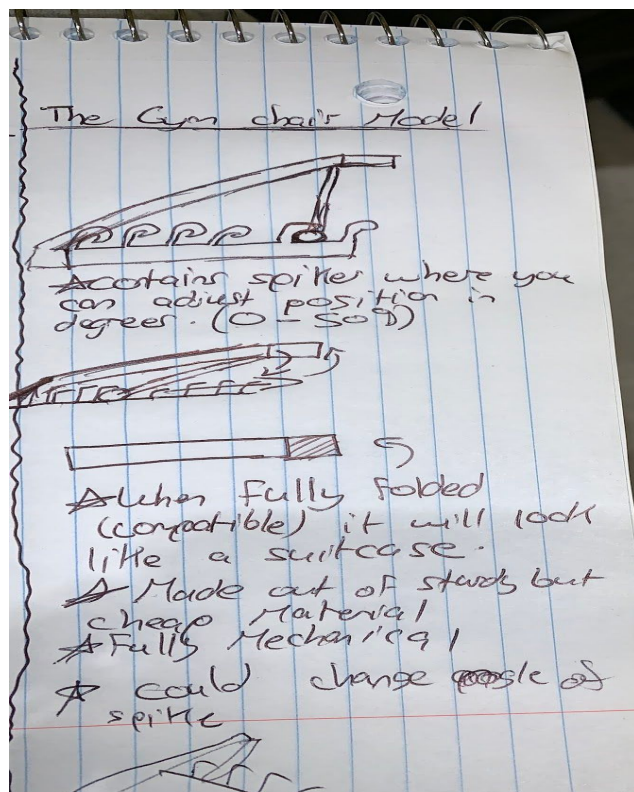 The Gym chair Model
contains spikes where you
can adjust position in
degrees. (0 - 50
When fully folded
(compatible) it will look
like a suitcase.
Made out of sturdy but
cheap Material
Fully Mechanical
could change angle of
spike